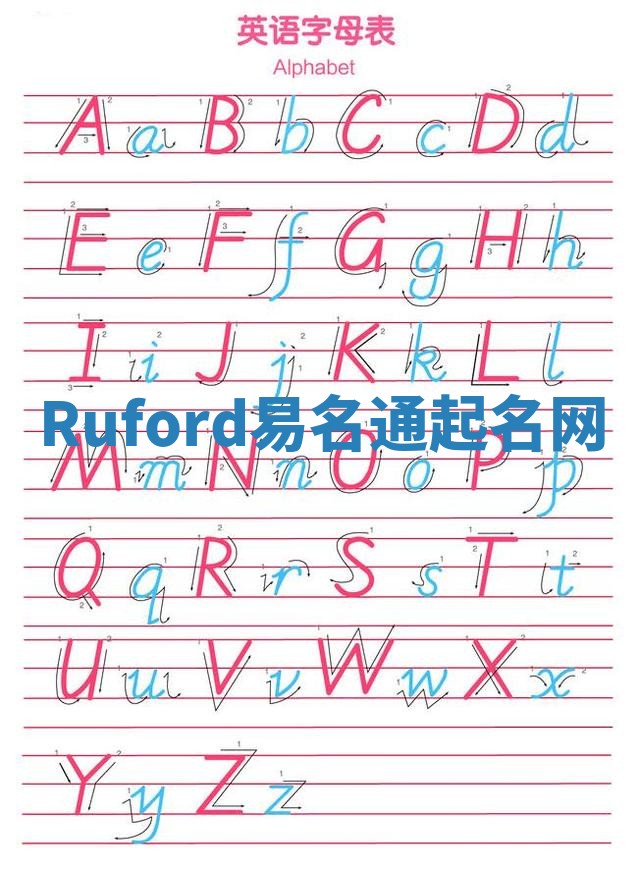 英语字母表
Alphabet
A a B b C c D d
E e F f G g H h
I i J j K k L l
Ruford易名通起名网
M m N n O o P p
Q q R r S s T t
U u V v W w X x
Y y Z z